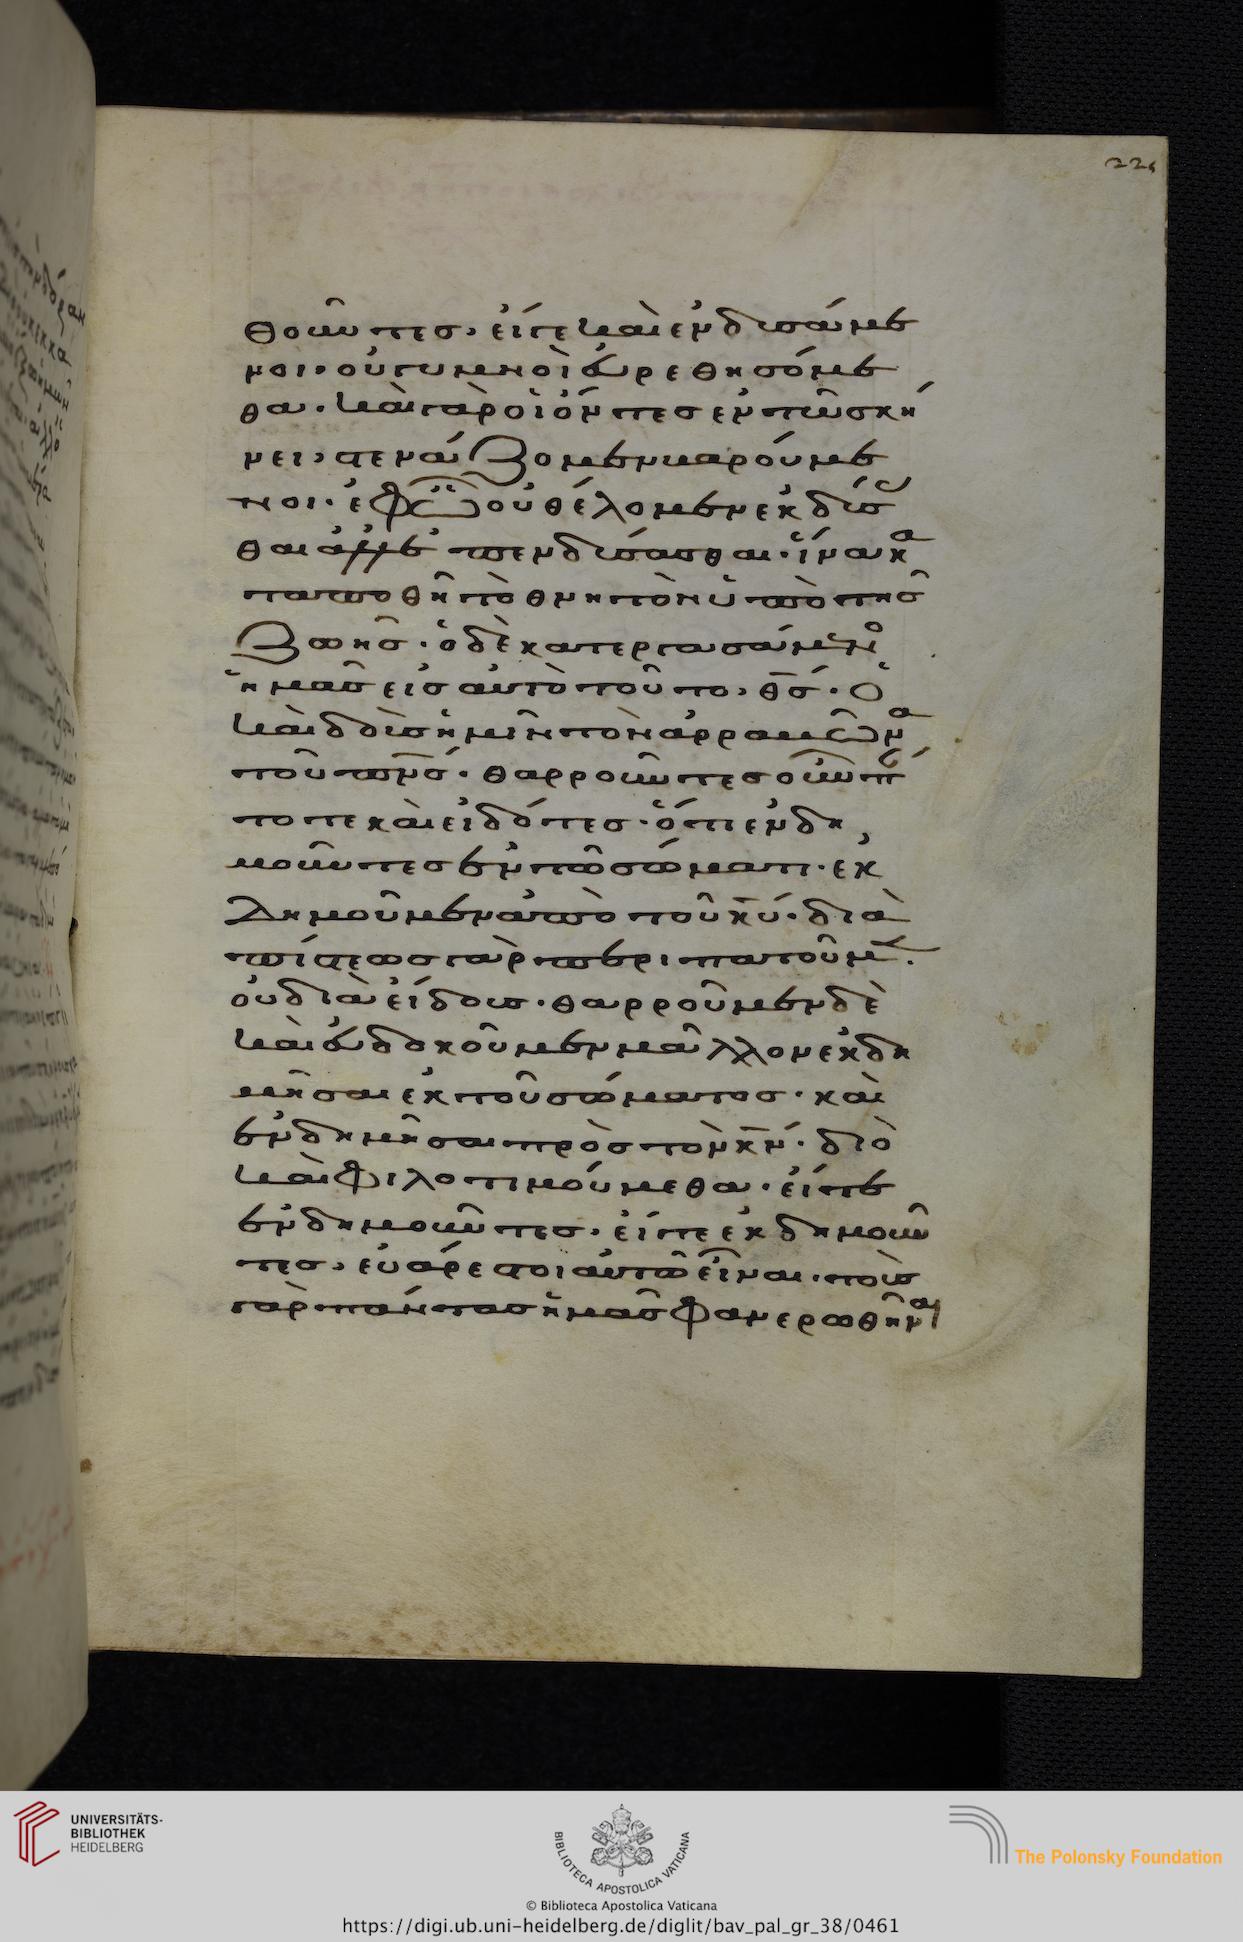 221
θοῦντες· εἴπε καὶ ἐνδυσάμε
νοι· οὐ γυμνοὶ εὑρεθησόμε
θα· καὶ γὰρ οἱ ὄντες ἐν τῶ σκή
νει, στενάζομεν βαρούμε
νοι· ἐφ ὧ οὐ θέλομεν ἐκδύσ
θαι ἀλλ' ἐπενδύσασθαι· ἵνα κα
ταποθῆ τὸ θνητὸν ὑπὸ τῆς
ζωῆς· ὁ δὲ κατεργασάμενο
ἡμᾶς εἰς αὐτὸ τοῦτο, θς· ὁ
καὶ δοὺς ἡμῖν τὸν ἀρραβῶνα
τοῦ πνς· θαρροῦντες οὖν πάν
τοτε καὶ εἰδότες· ὅτι ἐνδη
μοῦντες ἐν τῶ σώματι· ἐκ
δημοῦμεν ἀπὸ τοῦ κυ· διὰ
πίστεως γὰρ περιπατοῦμεν·
οὐ διὰ εἴδους· θαρροῦμεν δὲ
καὶ εὐδοκοῦμεν μᾶλλον ἐκδη
μῆσαι ἐκ τοῦ σώματος· καὶ
ἐνδημῆσαι πρὸς τὸν κν· διὸ
καὶ φιλοτιμούμεθα· εἴτε
ἐνδημοῦντες· εἴτε ἐκδημοῦν
τες, εὐάρεστοι αὐτῶ εἶναι· τοὺς
γὰρ πάντας ἡμᾶς φανερωθῆναι
UNIVERSITÄTS-
BIBLIOTHEK
HEIDELBERG
BIBLIOTECA APOSTOLICA VATICANA
The Polonsky Foundation
© Biblioteca Apostolica Vaticana
https://digi.ub.uni-heidelberg.de/diglit/bav_pal_gr_38/0461